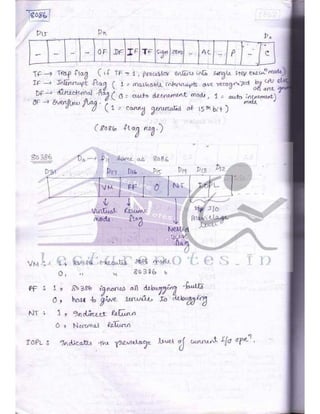 8086
D15 D11 D0
- - - - OF DF IF TF Sign Zero - AC - P - C
TF → Trap flag (if TF = 1, processor enters into single step execun mode)
IF → Interrupt flag (1 = maskable interrupts are recognized by CPU
DF → directional flag (0 = auto decrement mode, 1 = auto increment) mode
OF → Overflow flag. (1 = carry generated at 15th bit)
(8086 flag reg.)
80386 D0 → D11 same as 8086
D31 D17 D16 D15 D14 D13 D12
VM RF 0 NT IOPL
Virtual mode Resume flag Nested flag I/O Privilege level
LectureNotes.in
VM : 1, 80386 8086 mode
0, " " 80386 "
RF : 1, 80386 ignores all debugging faults
0, has to give service to debugging
NT : 1, Indirect Return
0, Normal Return
IOPL : Indicates the privelage level of current I/O opn.